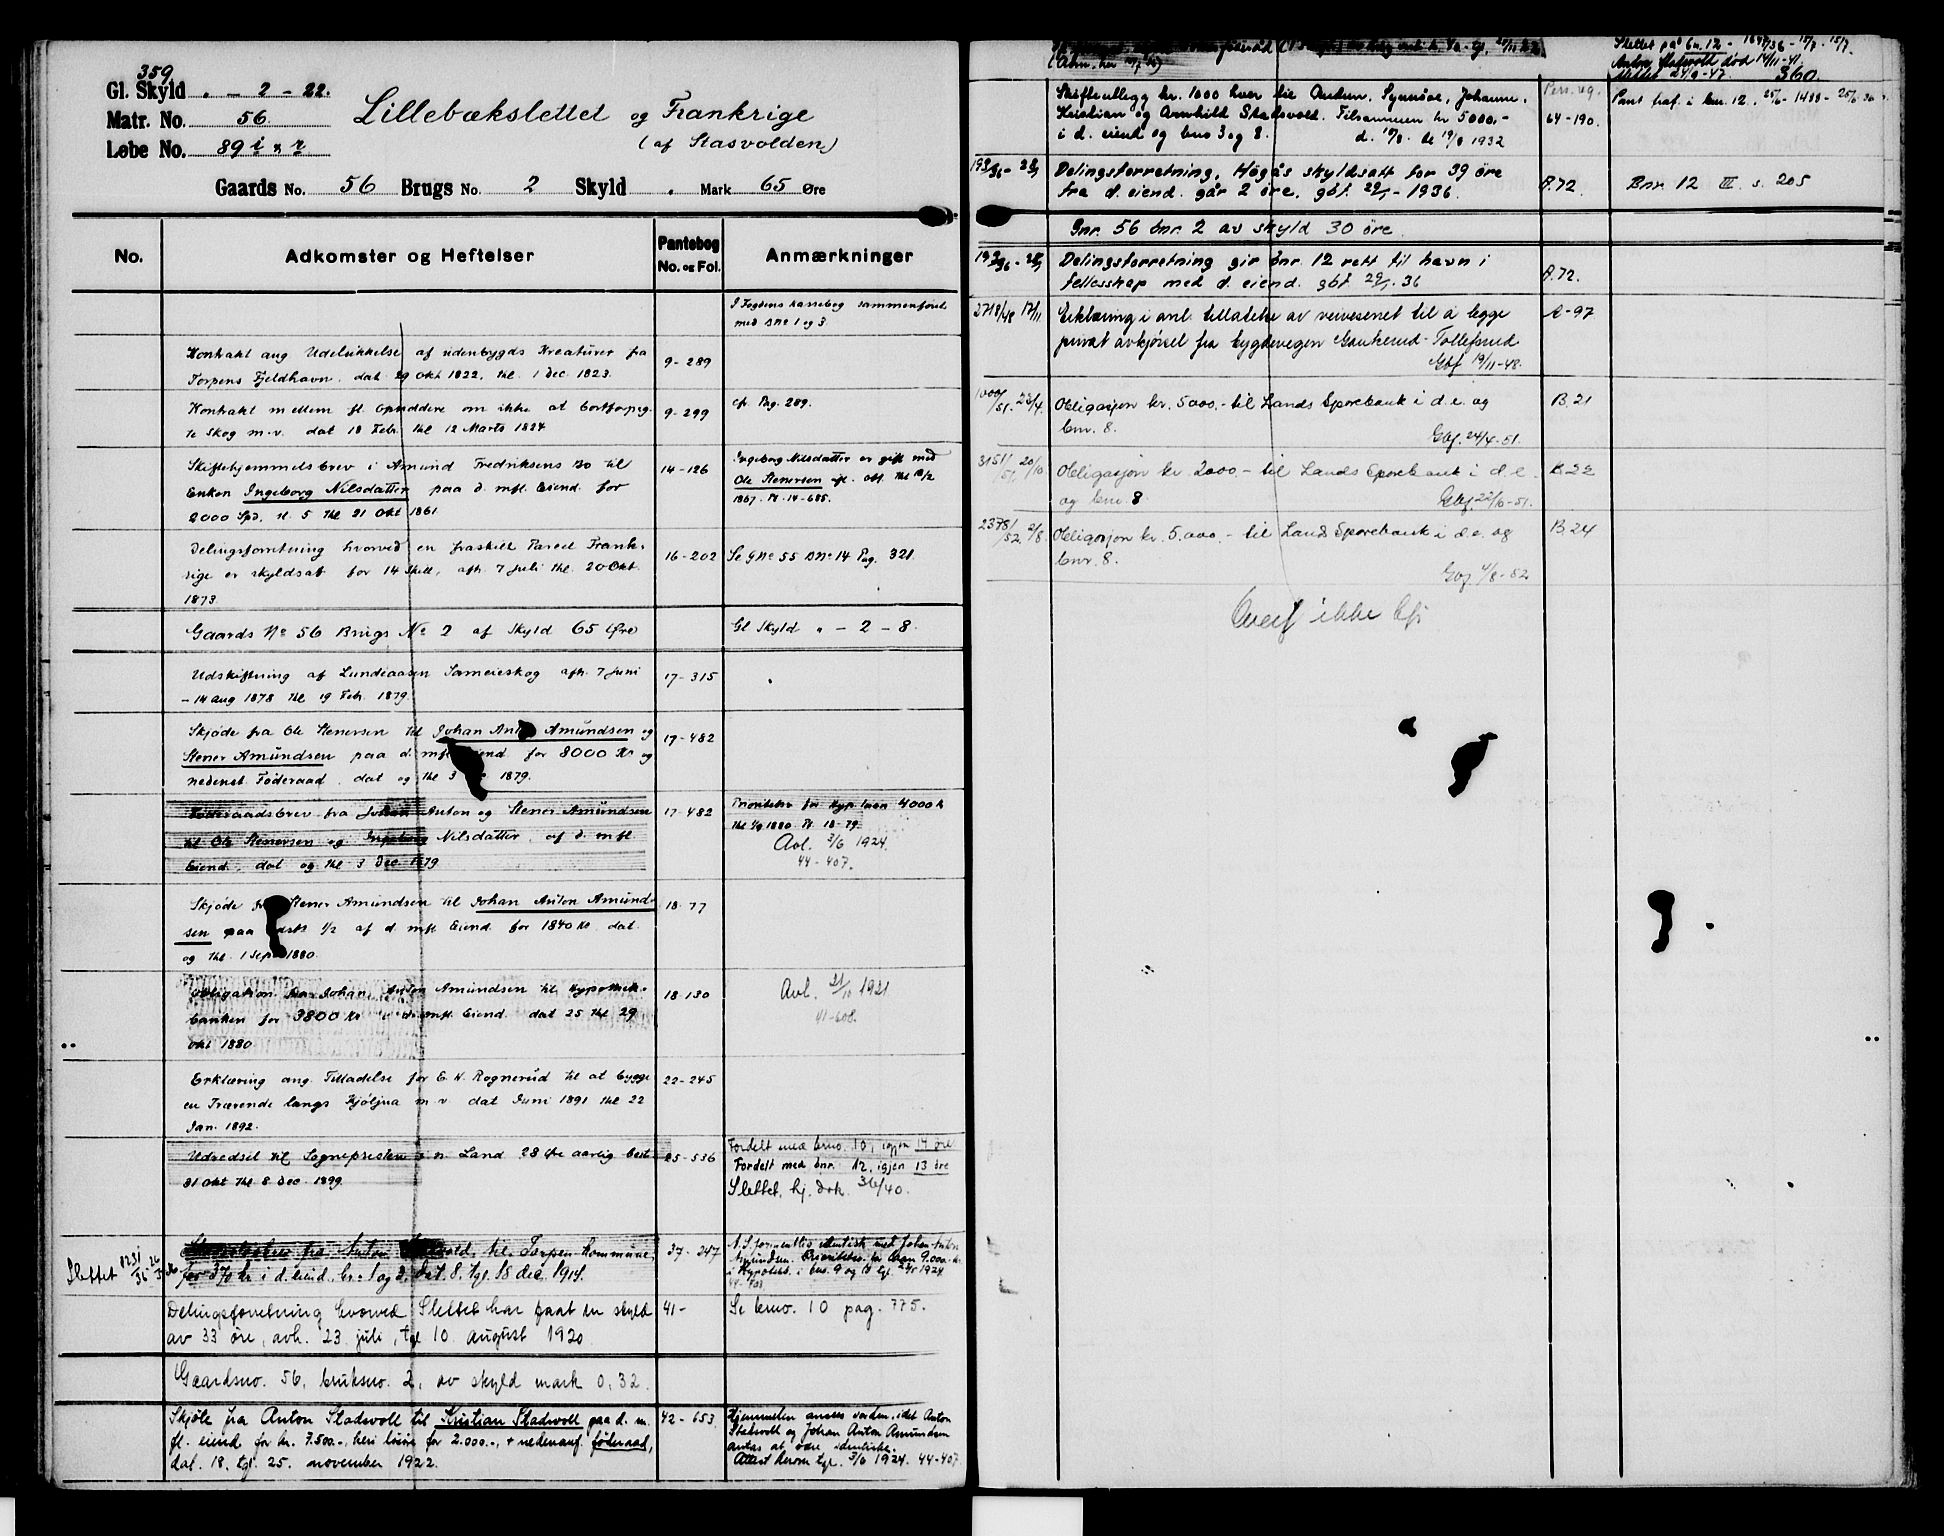 359
Gl. Skyld „ – 2 – 22.
Matr. No. 56.
Løbe No. 89 i & r
Lillebækslettet og Frankrige
(af Stasvolden)
Gaards No. 56 Brugs No. 2 Skyld . Mark 65 Øre
No. Adkomster og Heftelser Pantebog No. og Fol. Anmærkninger
I Fogdens
med Bno 1 og 3.
Kontrakt ang Udelukkelse af udenbygds Kreaturer fra
Torpens Fjeldhavn, dat 29 Okt 1822, thl. 1 Dec. 1823.
9-289
Kontrakt mellem fl Opsiddere om ikke at bortforpag-
te Skog m.v. dat 18 Febr. thl 12 Marts 1824
9-299
cfr. Pag. 289.
Skiftehjemmelsbrev i Amund Fredriksens Bo til
Enken Ingeborg Nilsdatter paa d. mfl. Eiend. for
2000 Spd. 5 thl 21 Okt 1861
14-126
Ingeborg Nilsdatter er gift med
Ole Stenersen
1867. Pt. 14-685.
Delingsforretning hvorved en fraskilt Parcel Frank-
rige er skyldsat for 14 Skill, afh. 7 Juli thl. 20 Okt.
1873.
16-202
Se Gno 55 Bno 14 Pag. 321.
Gaards No 56 Brugs No 2 af Skyld 65 Øre
Gl Skyld „ – 2 – 8.
Udskiftning af Lundeaasen Sameieskog afh. 7 Juni
– 14 Aug 1878 thl 19 Febr. 1879.
17-315
Skjøde fra Ole Stenersen til Johan Anton Amundsen og
Stener Amundsen paa d. mfl Eiend for 8000 Kr og
nedenst. Føderaad, dat og thl 3 1879.
17-482
Føderaadsbrev fra Johan Anton og Stener Amundsen
til Ole Stenersen og Ingeborg Nilsdatter, af d. mfl
Eiend, dat og thl 3 Dec 1879
17-482
Prioritetsv for Hyp. laan 4000 kr
thl 1/9 1880. Pt. 18-79.
Avl. 3/6 1924.
44-407.
Skjøde fra Stener Amundsen til Johan Anton Amund-
sen paa 1/2 af d mfl Eiend for 1840 Kr dat
og thl 1 Sept 1880.
18-77
Obligation fra Johan Anton Amundsen til Hypothek-
banken for 3800 Kr i d. mfl. Eiend. dat 25 thl 29
Okt 1880
18-130
Avl. 21/10 1921
41-608.
Erklæring ang. Tilladelse for E. N. Rognerud til at bygge
en Trærende langs Kjøljua m.v. dat Juni 1891 thl 22
Jan. 1892.
22-245
Udredsel til Sognepresten i n. Land 28 Øre aarlig best
31 Okt thl 8 Dec. 1899.
25-536
Fordelt med brno. 10, igjen 14 øre.
Fordelt med bnr. 12, igjen 13 øre
Slettet, hj. dok. 36/40.
Slettet
fra Anton til Torpen Kommune,
for 370 kr i d. eiend., br. 1 og 3, dat. 8, tgl. 18 dec. 1914.
37-247
A. S. formentlig identisk med Johan Anton
Amundsen. Prioritetsv. for laan 9.000 kr.
i Hypotekb. i bno. 9 og tgl. 24/5 1924
Delingsforretning hvorved Slettet har faat en skyld
av 33 øre, avh. 23. juli, tgl 10. august 1920.
41-
Se brno. 10 pag. 775.
Gaardsno. 56, bruksno. 2, av skyld mark 0,32.
Skjøte fra Anton Stadsvoll til Kristian Stadsvoll paa d. m.
fl. eiend for kr. 7.500.-, heri løsøre for 2.000.-, + nedenanf. føderaad,
dat. 18, tgl. 25. november 1922.
42-653.
Hjemmelen ansees iorden, idet Anton
Stadsvoll og Johan Anton Amundsen
antas at være identiske.
Attest herom tgl. 3/6 1924. 44-407
Slettet på bn. 12
Anton Stadsvold død 14/11-41.
Slettet 24/9-47
360.
Skifteutlegg kr. 1000 hver til Anders, Synnöve, Johanne,
Kristian og Arnhild Stadsvold. Tilsammen kr 5000,-
i d. eiend og bno 3 og 8.
Pers. reg.
64-190.
Pant fraf. i bnr. 12.
Delingsforretning, Högås skyldsatt for 39 öre
fra d. eiend. går 2 öre. gbf. 29/1-1936.
A. 72.
Bnr. 12 III s. 205
Gnr. 56 bnr. 2 av skyld 30 öre.
Delingsforretning gir bnr. 12 rett til havn i
fellesskap med d. eiend. gbf 29/1. 36
A. 72.
2718/48 17/11
Erklæring i anl. tillatelse av veivesenet til å legge
privat avkjørsel fra bygdevegen Gaukerud-Tollefsrud
Gbf 19/11-48.
A-97
Obligasjon kr. 5000,- til Lands Sparebank i d. e. og
bnr. 8.
Gbf. 24/4-51.
B. 21
3151/51. 20/10
Obligasjon kr. 2000.- til Lands Sparebank i d. e
og bnr 8
Gbf. 22/10-51.
B. 22
2378/52 2/8.
Obligasjon kr. 5.000.- til Lands Sparebank i d. e. og
bnr. 8.
Gbf 4/8-52
B. 24